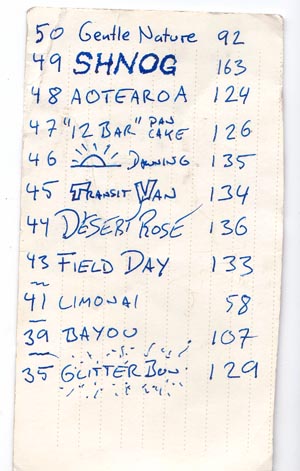 50 Gentle Nature 92
49 SHNOG 163
48 AOTEAROA 124
47 "12 BAR" PAN CAKE 126
46 Dawning 135
45 TRANSIT VAN 134
44 DESERT ROSE 136
43 FIELD DAY 133
41 LIMONAI 58
39 BAYOU 107
35 GLITTER BUN 129